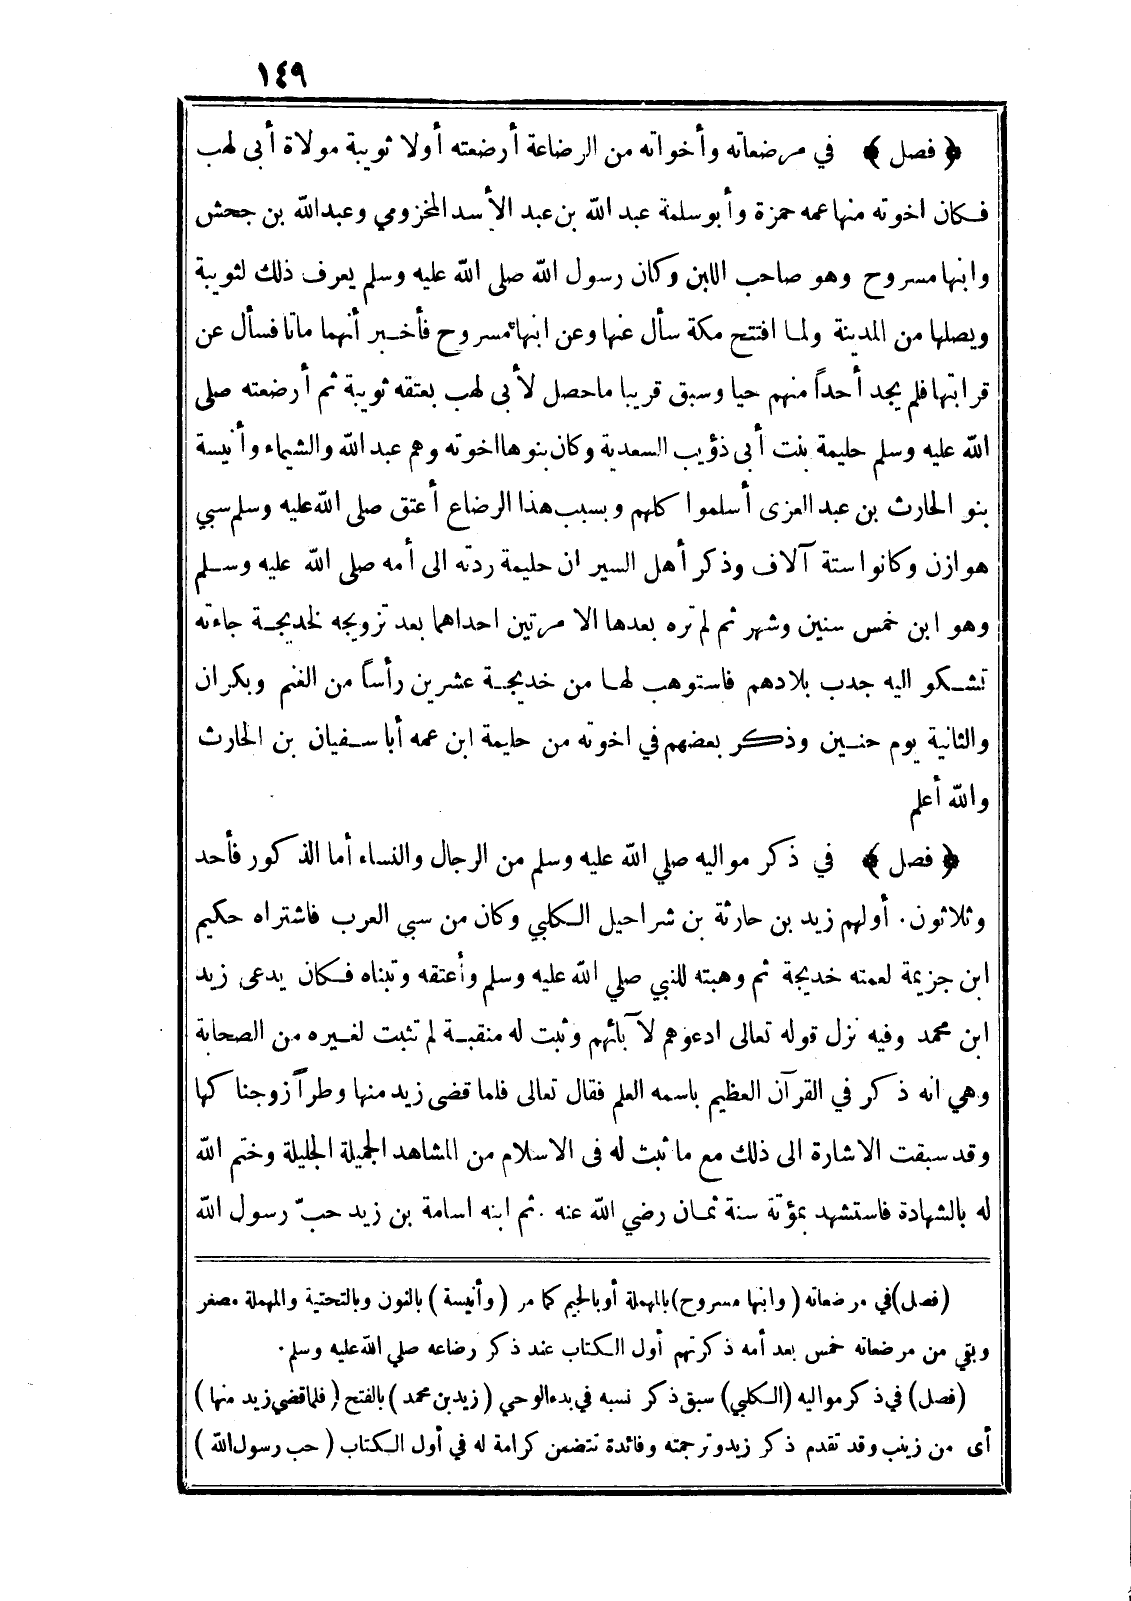 ١٤٩
﴿ فصل ﴾ في مرضعاته وأخواته من الرضاعة أرضعته أولا ثويبة مولاة أبى لهب
فكان اخوته منها عمه حمزة وأبو سلمة عبد الله بن عبد الأسد المخزومي وعبد الله بن جحش
وابنها مسروح وهو صاحب اللبن وكان رسول الله صلى الله عليه وسلم يعرف ذلك لثويبة
ويصلها من المدينة ولما افتتح مكة سأل عنها وعن ابنها مسروح فأخبر أنهما ماتا فسأل عن
قرابتها فلم يجد أحداً منهم حيا وسبق قريبا ما حصل لأبى لهب بعتقه ثويبة ثم أرضعته صلى
الله عليه وسلم حليمة بنت أبى ذؤيب السعدية وكان بنوها اخوته وهم عبد الله والشيماء وأنيسة
بنو الحارث بن عبد العزى أسلموا كلهم وبسبب هذا الرضاع أعتق صلى الله عليه وسلم سبي
هوازن وكانوا ستة آلاف وذكر أهل السير ان حليمة ردته الى أمه صلى الله عليه وسلم
وهو ابن خمس سنين وشهر ثم لم تره بعدها الا مرتين احداهما بعد تزويجه لخديجة جاءته
تشكو اليه جدب بلادهم فاستوهب لها من خديجة عشرين رأساً من الغنم وبكران
والثانية يوم حنين وذكر بعضهم في اخوته من حليمة ابن عمه أبا سفيان بن الحارث
والله أعلم
﴿ فصل ﴾ في ذكر مواليه صلي الله عليه وسلم من الرجال والنساء أما الذكور فأحد
وثلاثون. أولهم زيد بن حارثة بن شراحيل الكلبي وكان من سبي العرب فاشتراه حكيم
ابن جزيمة لعمته خديجة ثم وهبته للنبي صلي الله عليه وسلم وأعتقه وتبناه فكان يدعى زيد
ابن محمد وفيه نزل قوله تعالى ادعوهم لآبائهم وثبت له منقبة لم تثبت لغيره من الصحابة
وهي انه ذكر في القرآن العظيم باسمه العلم فقال تعالى فلما قضى زيد منها وطراً زوجناكها
وقد سبقت الاشارة الى ذلك مع ما ثبت له فى الاسلام من المشاهد الجميلة الجليلة وختم الله
له بالشهادة فاستشهد بمؤتة سنة ثمان رضي الله عنه . ثم ابنه اسامة بن زيد حبّ رسول الله
(فصل) في مرضعاته (وابنها مسروح) بالمهملة أو بالجيم كما مر (وأنيسة) بالنون وبالتحتية والمهملة مصغر
وبقي من مرضعاته خمس بعد أمه ذكرتهم أول الكتاب عند ذكر رضاعه صلي الله عليه وسلم.
(فصل) في ذكر مواليه (الكلبي) سبق ذكر نسبه في بدء الوحي (زيد بن محمد) بالفتح (فلما قضي زيد منها)
أى من زينب وقد تقدم ذكر زيد وترجمته وفائدة تتضمن كرامة له في أول الكتاب (حب رسول الله)